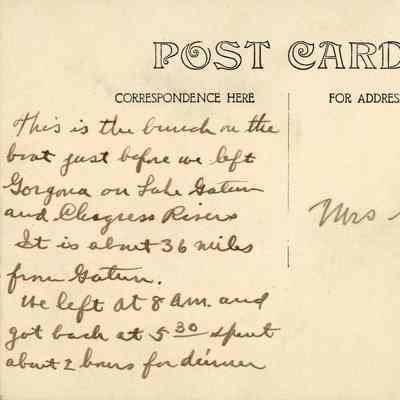 POST CARD
CORRESPONDENCE HERE
FOR ADDRES
This is the bunch on the
boat just before we left
Gorgona on Lake Gatun
and Chagress Rivers
It is about 36 miles
from Gatun.
We left at 8 A.M. and
got back at 5 30 spent
about 2 hours for dinner
Mrs